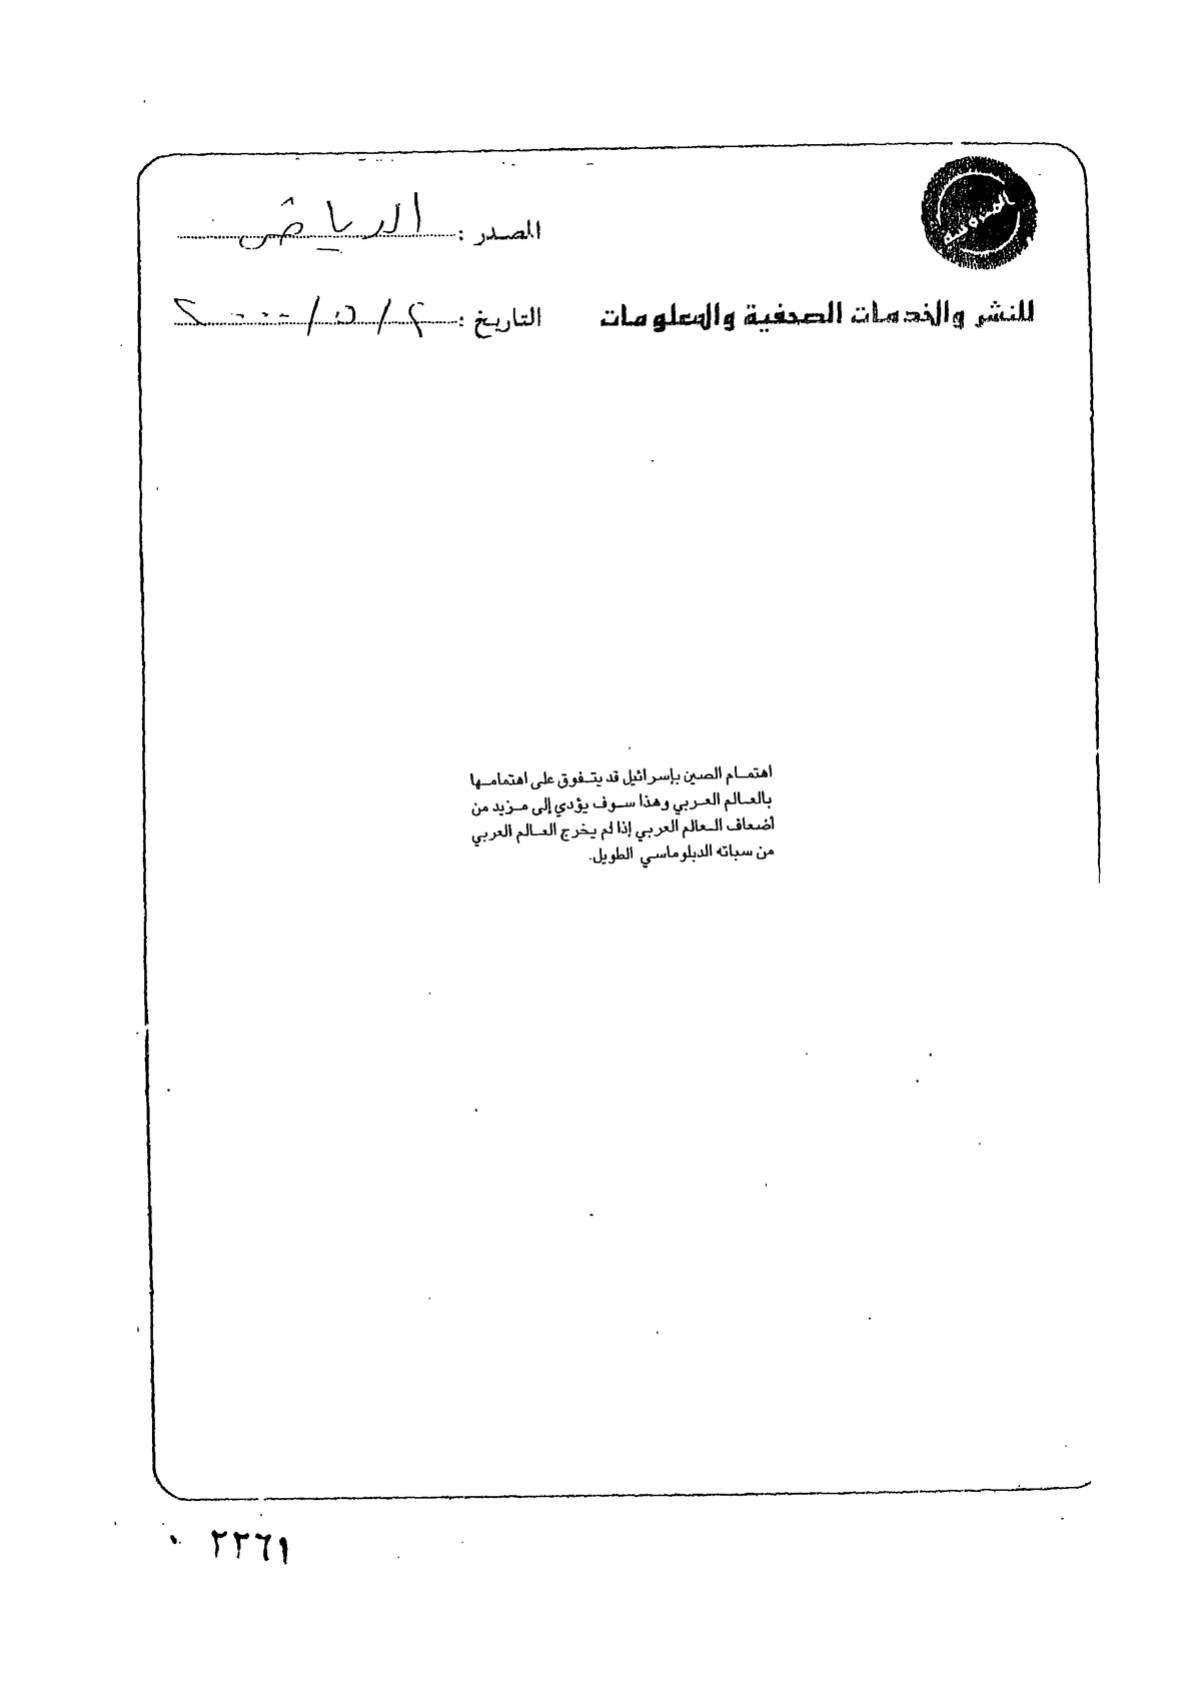 المصدر : الرياض
للنشر والخدمات الصحفية والمعلومات
التاريخ : ٤ / ٥ / ٢٠٠٠
اهتمام الصين بإسرائيل قد يتفوق على اهتمامها
بالعالم العربي وهذا سوف يؤدي إلى مزيد من
أضعاف العالم العربي إذا لم يخرج العالم العربي
من سباته الدبلوماسي الطويل.
٢٢٦١